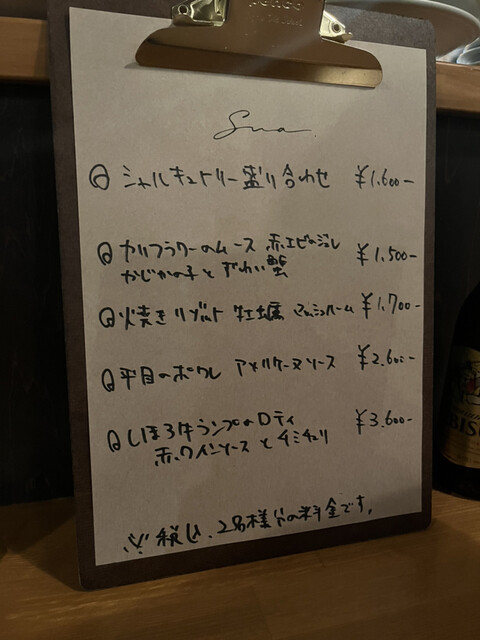 Sua
シャルキュトリー盛り合わせ ¥1.600-
カリフラワーのムース 赤エビのジュレ ¥1.500-
かじかの子とずわい蟹
焼きリゾット 牡蠣 マッシュルーム ¥1.700-
平目のポワレ アメリケーヌソース ¥2.600-
しほろ牛ランプのロティ ¥3.600-
赤ワインソースとチミチュリ
※税込、2名様分の料金です。
BIS